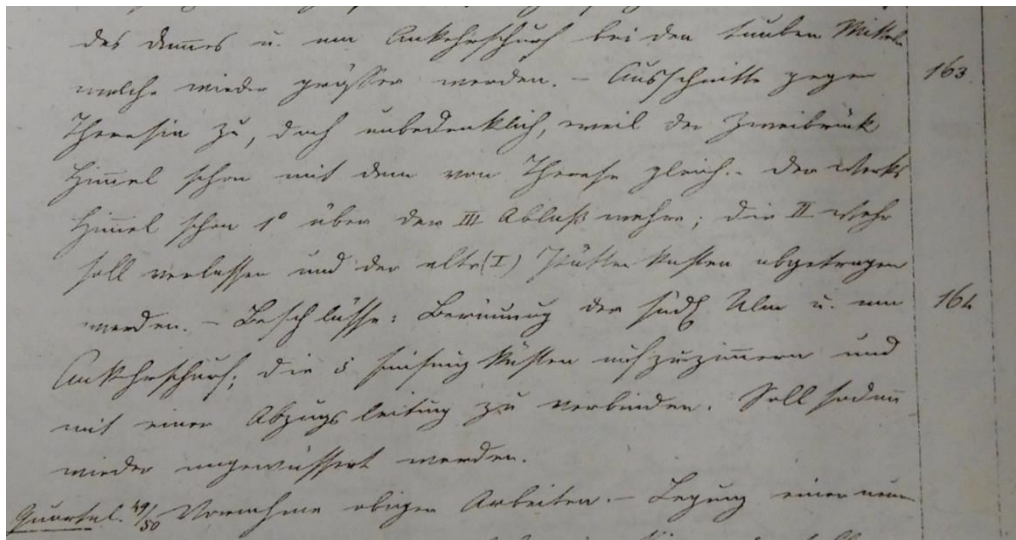 des Dammes u. am Ankehrschurf bei den tauben Mitteln
welche wieder größer werden. – Ausschnitte gegen 163.
Theresia zu, doch unbedenklich, weil der Zweibrück
Himmel schon mit dem von Therese gleich. – Der Werks
Himmel schon 1° über der III Ablaß; die II Wehr
soll verlassen und der alte (I) Kasten abgetragen
werden. – Beschlüsse: der südl Ulm u. am 164
Ankehrschurf; die 5 Kästen aufzuzimmern und
mit einer Abzugsleitung zu verbinden. Soll sodann
wieder angewässert werden.
Quartal. 49/50 Vornahme obiger Arbeiten. – Legung einer neuen